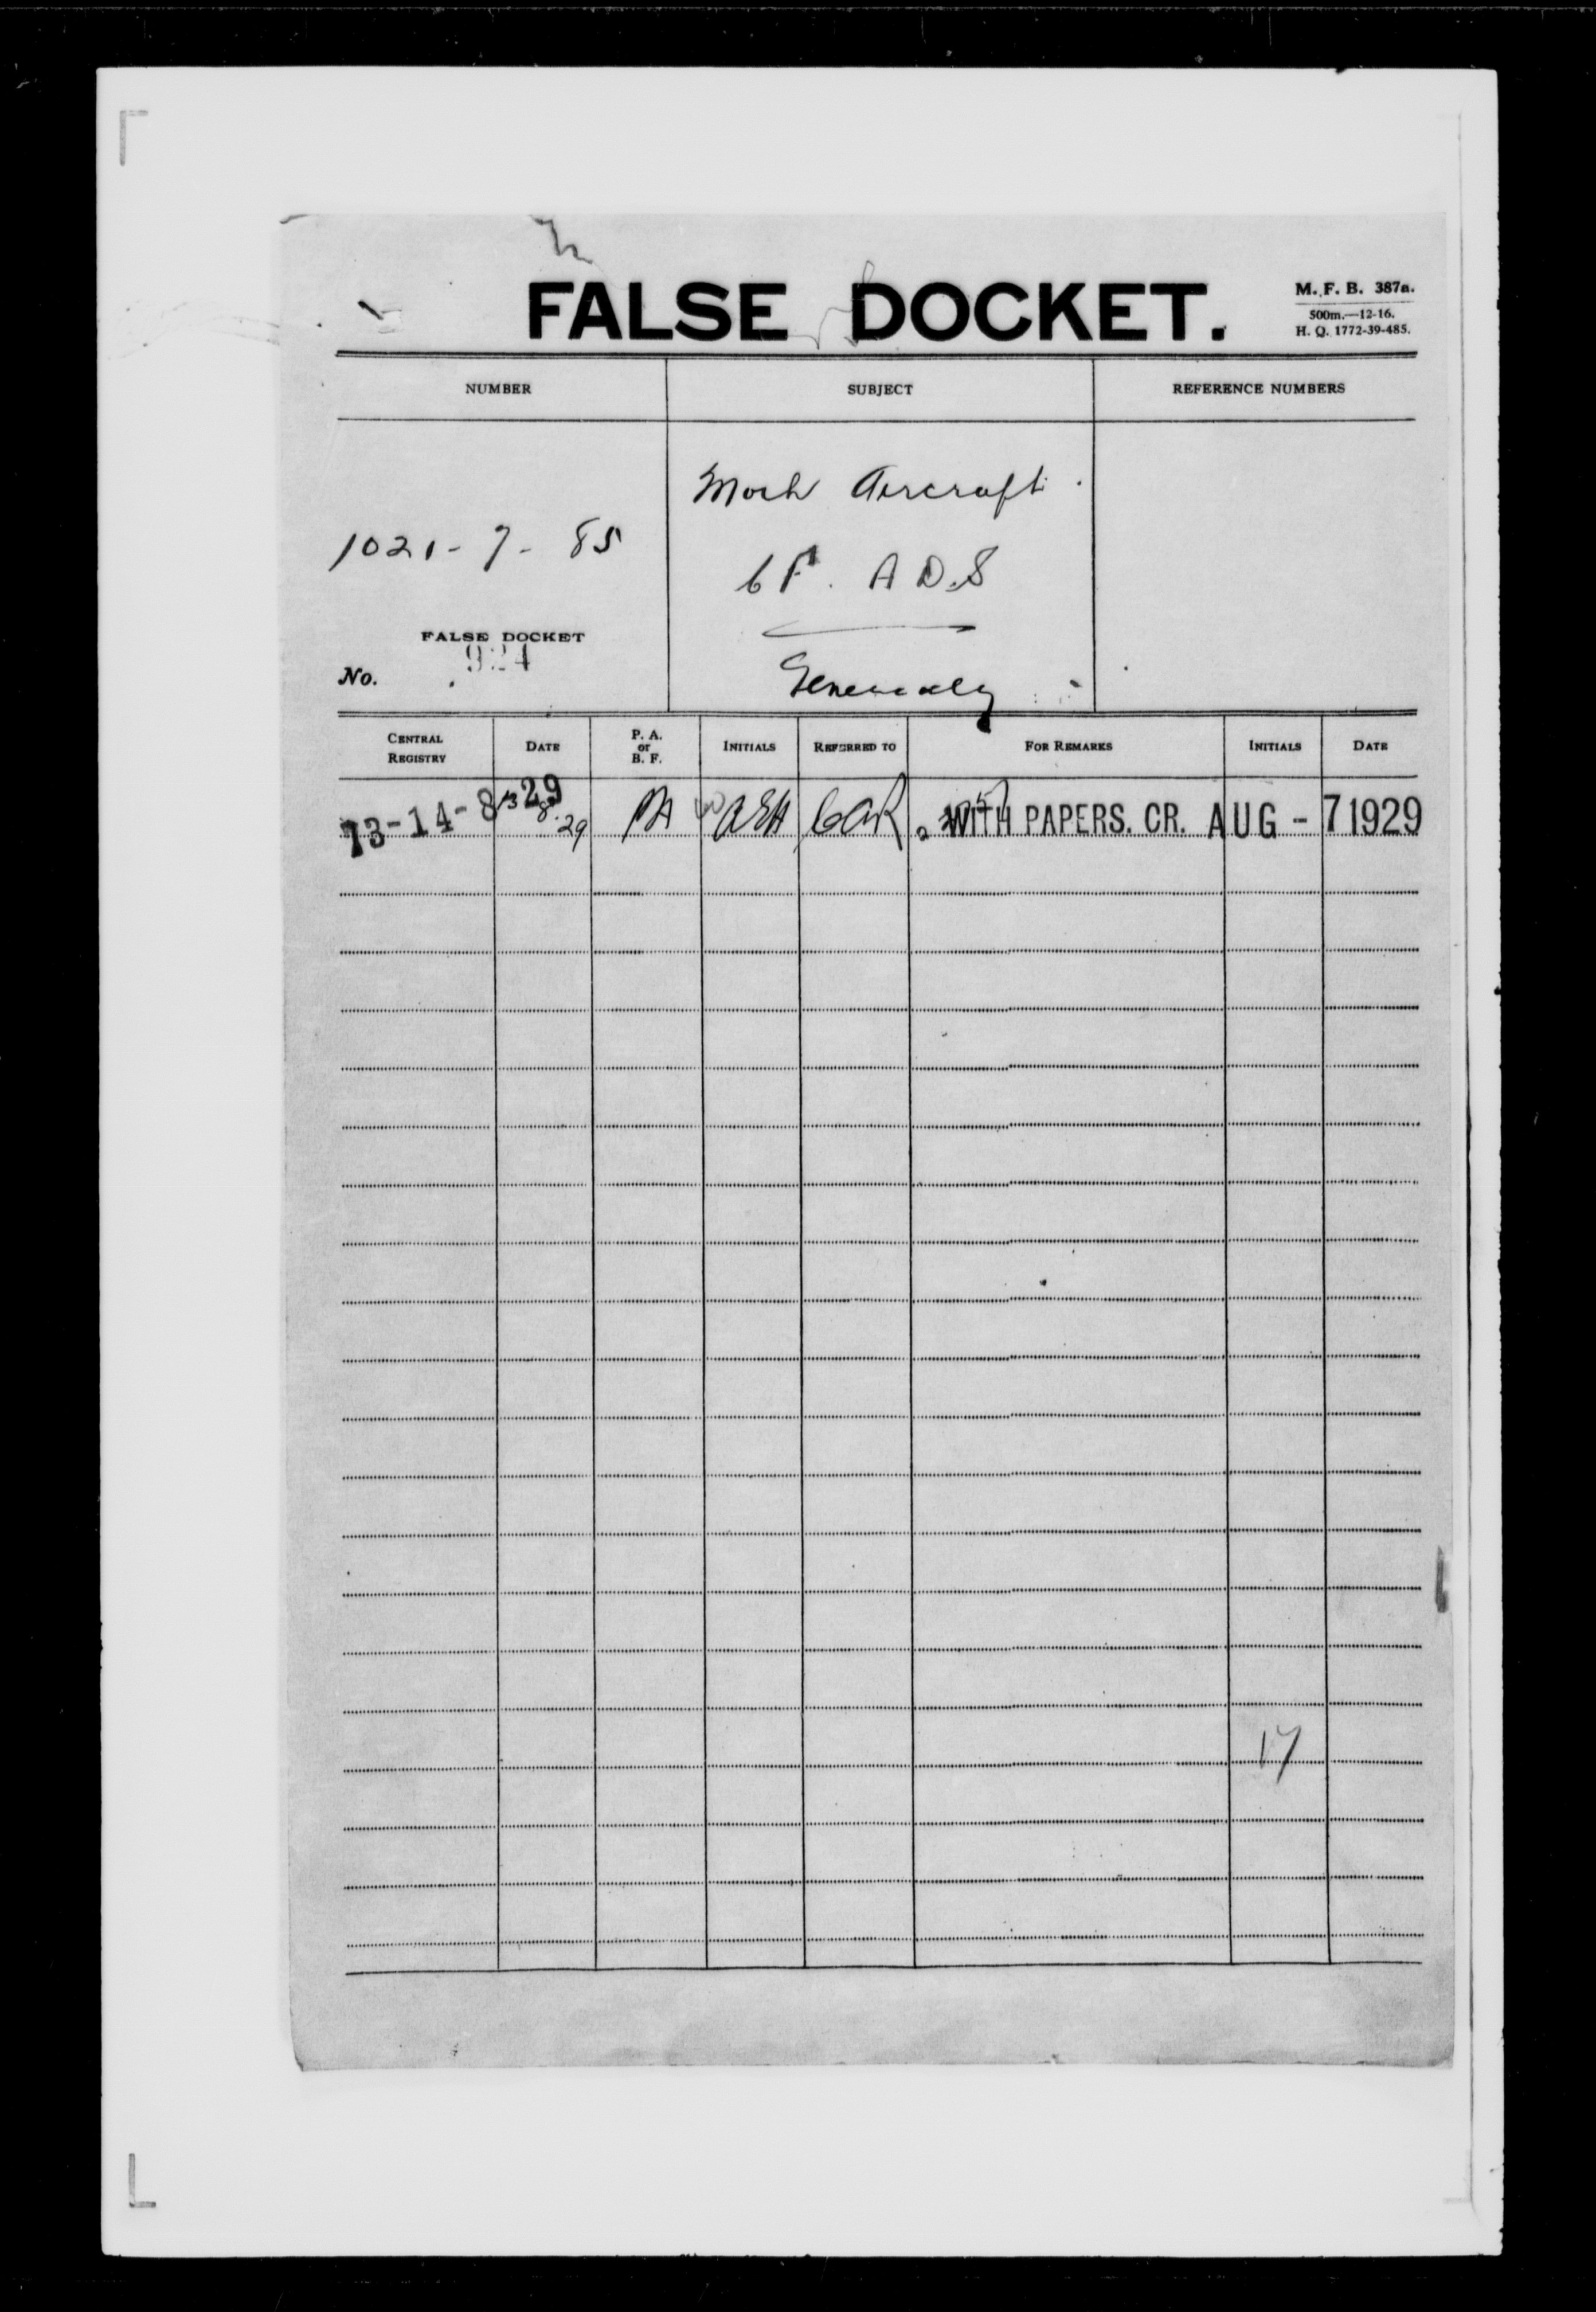 FALSE DOCKET.
M. F. B. 387a.
500m.—12-16.
H. Q. 1772-39-485.
NUMBER SUBJECT REFERENCE NUMBERS
Moth Aircraft.
1021-7-85
A.D.S
FALSE DOCKET
No. 924
Generally
CENTRAL REGISTRY DATE P. A. or B. F. INITIALS REFERRED TO FOR REMARKS INITIALS DATE
13-14-8 29 PA WITH PAPERS. CR. AUG - 7 1929
17